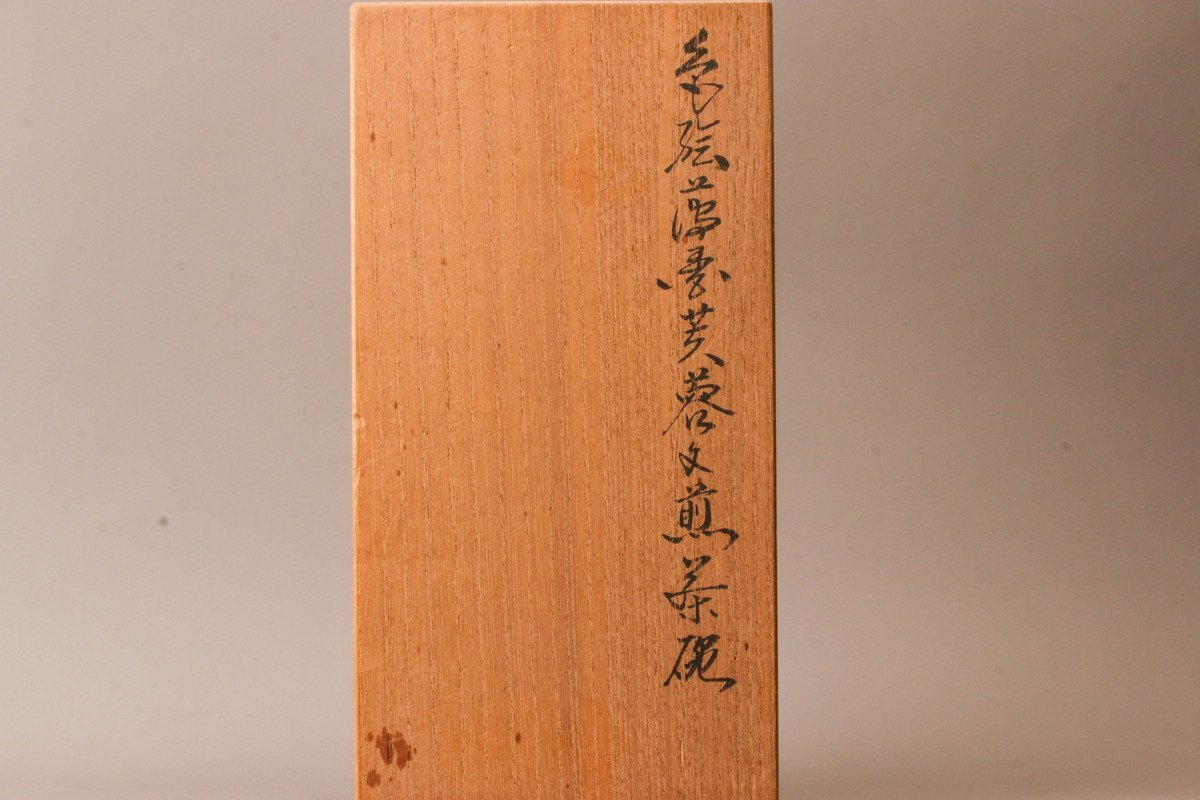 色絵薄墨芙蓉文煎茶碗